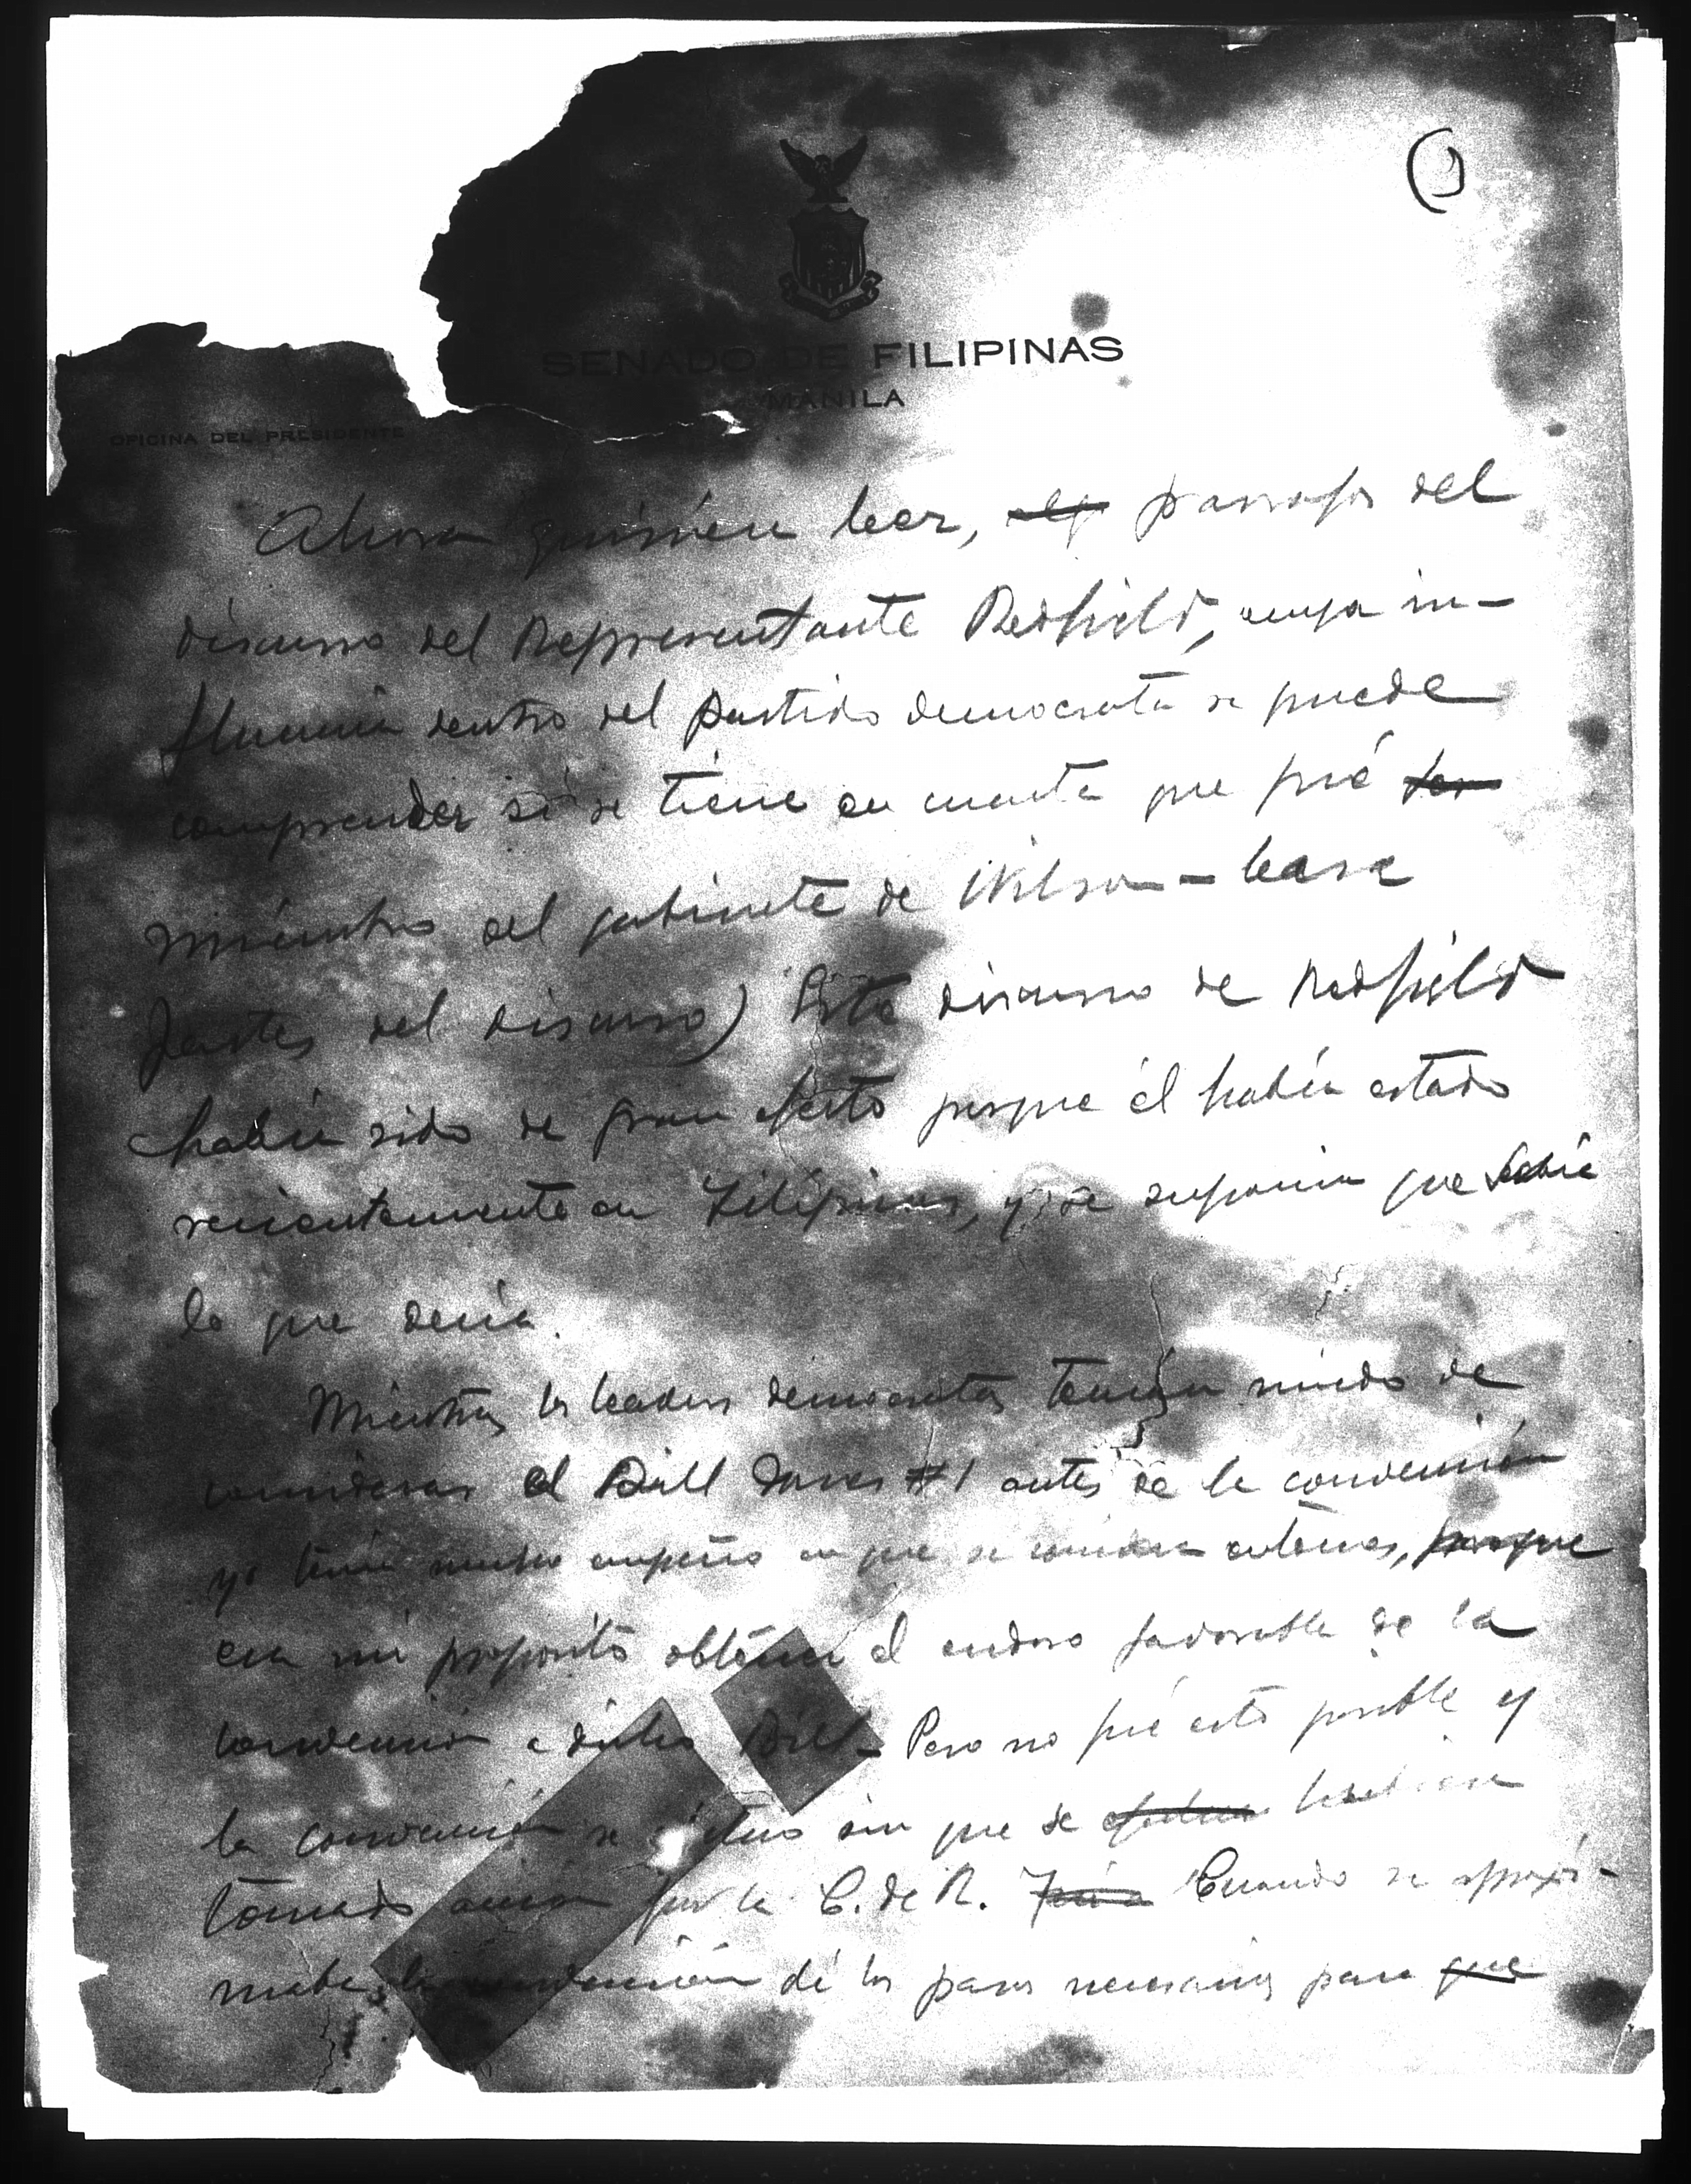 SENADO DE FILIPINAS
MANILA
OFICINA DEL PRESIDENTE
Ahora quisiera leer, parrafos del
discurso del Representante Redfield, cuya in-
fluencia dentro del partido democrata se puede
comprender si se tiene en cuenta que fué
miembro del gabinete de Wilson - lease
partes del discurso) Este discurso de Redfield
había sido de gran efecto porque él había estado
recientemente en Filipinas, y se suponia que sabía
lo que decía.
Mientras los leaders democratas tenían miedo de
considerar el Bill Jones #1 antes de la convención
yo tenía mucho empeño en que se considere entonces, porque
era mi proposito obtener el endoso favorable de la
convención a dicho Bill - Pero no fué esto posible y
la convención se sin que se hubiese
tomado acción por la C. de R. Cuando se aproxi-
maba la convención dí los pasos necesarios para que